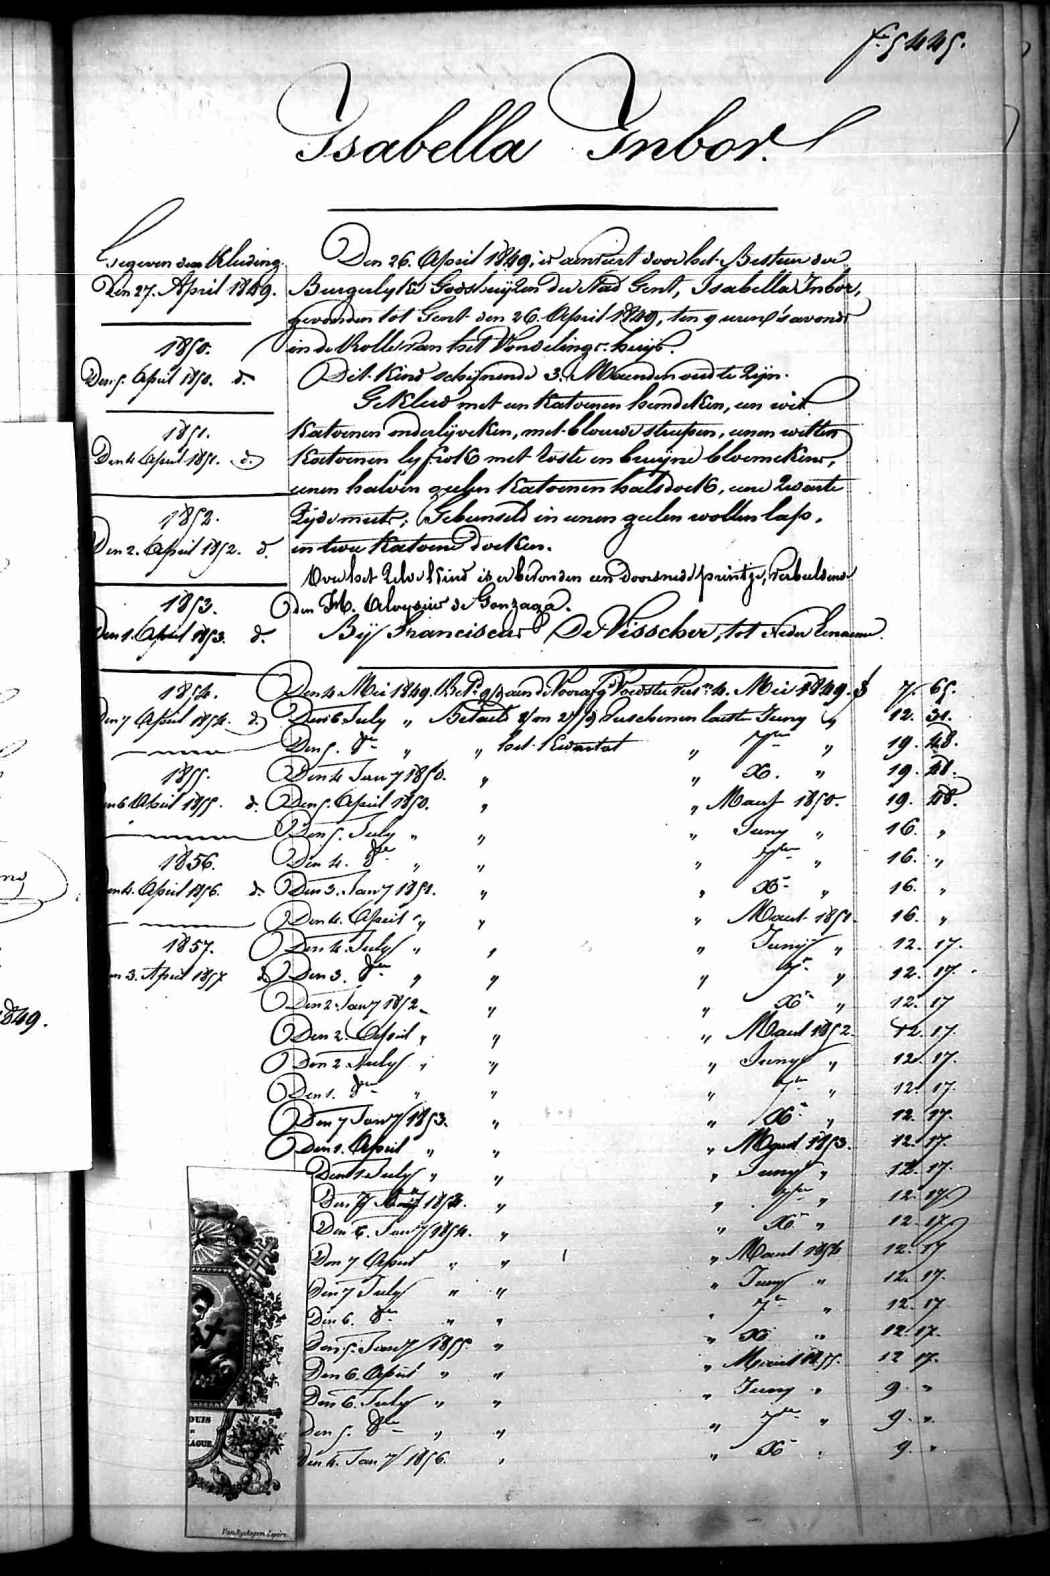 f.° 5445.
Isabella Inbor.
Gegeven den Kleiding
Den 27. April 1849.
1850.
Den 5. April 1850. d.
1851.
Den 4 April 1851. d.
1852.
Den 2. April 1852. d.
1853.
Den 1. April 1853. d.
1854.
Den 7 April 1854. d.
1855.
Den 6 April 1855. d.
1856.
Den 4. April 1856. d.
1857.
Den 3. April 1857 d.
Den 26. April 1849, is aenveirt door het Bestuer der
Burgerlyke Godshuijzen der Stad Gent, Isabella Inbor,
gevonden tot Gent den 26. April 1849, ten 9 uren 's avonds
in de Rolle van het Vondelings-huijs.
Dit Kind schijnende 3. Maenden oud te Zijn.
Gekleed met een Katoenen hemdeken, een wit
Katoenen onderlijveken, met blauwe streepen, eenen witten
Katoenen lyfrok met roste en bruijne bloemekens,
eenen halven geelen Katoenen halsdoek, eene Zwarte
Zijde muts, Gebunseld in eenen geelen wollen lap,
en twee Katoene doeken.
Over het Zelve Kind is er bevonden een doorsnede printje, verbeeldende
den H. Aloysius de Gonzaga.
Bij Franciscus De Visscher, tot Neder Eenaeme.
Den 4 Mei 1849. Bet. aen de Voorz. Voedster 4. Mei 1849. f 7. 65.
Den 6 July " Betaelt tusschenen laeste Juny " 12. 31.
Den 5. 8ber " " het Kwartael " 7ber " 19. 48.
Den 4 Jan.y 1850. " " Xb. " 19. 48.
Den 5. April 1850. " " Maert 1850. 19. 48.
Den 5. July " " " Juny " 16. "
Den 4. 8ber " " " 7ber " 16. "
Den 3. Jan.y 1851. " " Xb. " 16. "
Den 4. April " " " Maert 1851. 16. "
Den 4. July " " " Juny " 12. 17.
Den 3. 8ber " " " 7b. " 12. 17.
Den 2 Jan.y 1852 " " Xb. " 12. 17
Den 2. April " " " Maert 1852. 12. 17.
Den 2 July " " " Juny " 12. 17.
Den 1. 8ber " " " 7b. " 12. 17.
Den 7 Jan.y 1853. " " Xb. " 12. 17.
Den 1. April " " " Maert 1853. 12. 17.
Den 1 July " " " Juny " 12. 17.
Den 7 1853. " " 7ber " 12. 17
Den 6. Jan.y 1854. " " Xb. " 12 17
Den 7 April " " " Maert 1854 12. 17
Den 7 July " " " Juny " 12. 17.
Den 6. 8ber " " " 7b. " 12. 17
Den 5. Jan.y 1855 " " Xb. " 12. 17.
Den 6. April " " " Maert 1855. 12 17.
Den 6. July " " " Juny " 9. "
Den 5. 8ber " " " 7ber " 9. "
Den 4. Jan.y 1856. " " Xb. " 9. "
1849.
OUIS
AGUE